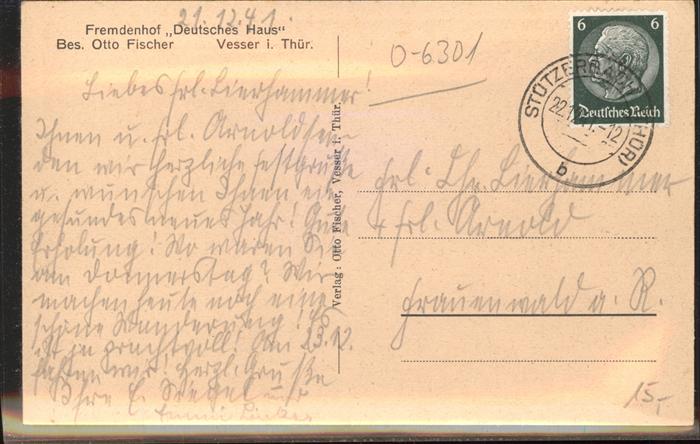 21.12.41.
Fremdenhof „Deutsches Haus"
Bes. Otto Fischer Vesser i. Thür.
0-6301
6 6
Deutsches Reich
STÜTZERBACH (THÜR)
22.12.41.-12
b
Liebes Frl. Lierhammer!
Ihnen u. Frl. Arnold
den wir herzliche Festgrüße
u. wünschen Ihnen ein
gesundes neues Jahr! Gute
Erholung! Wo waren Sie
am Donnerstag? Wir
machen heute noch eine
schöne Wanderung! Es
ist ja prachtvoll! Am 23.12.
fahren wir! Herzl. Grüße
Ihre E. Siegel und
Verlag: Otto Fischer, Vesser i. Thür.
Frl. Chr. Lierhammer
+ Frl. Arnold
Frauenwald a. R.
15,-